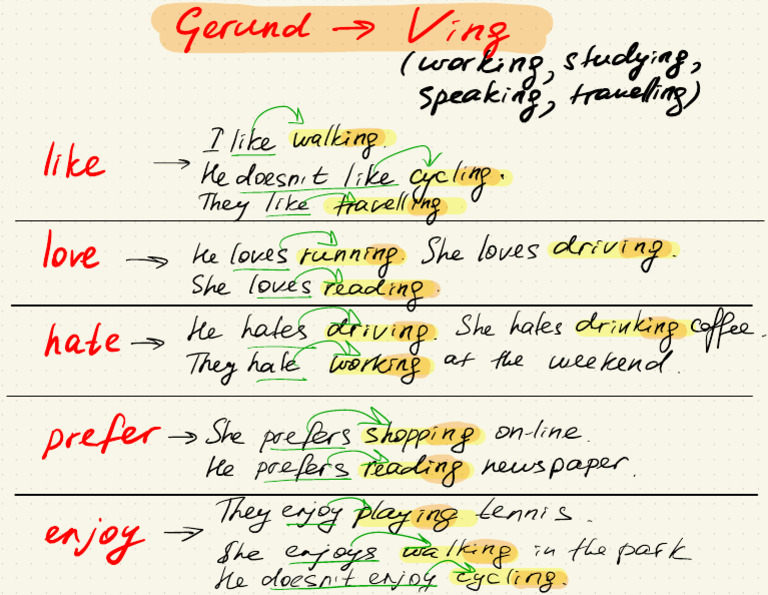 Gerund → Ving
(working, studying,
speaking, travelling)
like → I like walking.
He doesn't like cycling.
They like travelling
love → He loves running. She loves driving.
She loves reading.
hate → He hates driving. She hates drinking coffee.
They hate working at the weekend.
prefer → She prefers shopping on-line.
He prefers reading newspaper.
enjoy → They enjoy playing tennis.
She enjoys walking in the park
He doesn't enjoy cycling.